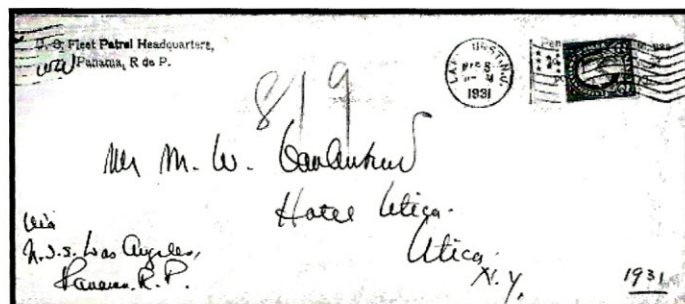 U.S. Fleet Patrol Headquarters,
Panama, R de P.
1931
819
Mr M. W.
Hotel Utica.
Utica
N.Y.
Via
U.S.S. Los Angeles,
Panama. R. P.
1931